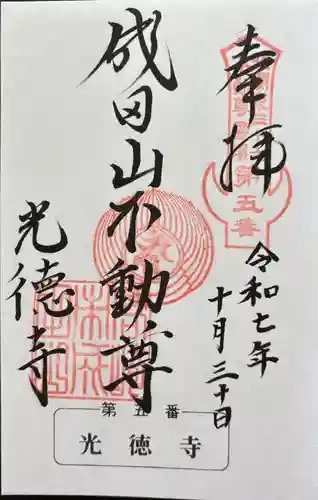 奉拝
令和七年
十月三十日
成田山不動尊
光徳寺
第五番
第五番
光徳寺